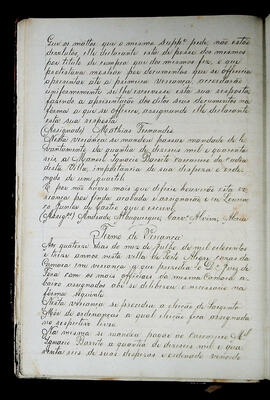 Que os mattos que o mesmo suppe. pede não estão
devolutos, elle declarante está de posse dos mesmos
por titulo de compra que dos mesmos fez, e que
protestava mostrar por documentos que se offerecia
apresentar até a primeira vereança, accordarão
uniformemente se lhe escrevesse esta sua resposta
fazendo a apresentação dos ditos seus documentos na
forma que se offerece, assignando elle declarante
esta sua resposta.
(Assignado) Mathias Fernandes
Nesta vereança se mandou passar mandado de le-
vantamento da quantia de dezeseis mil e quarenta
reis a Manoel Ignacio Barreto carcereiro da cadea
desta Villa, importancia de sua despeza e orde-
nado de um quartel
E por não haver mais que deferir houverão esta ve-
reança por finda acabada e assignarão e eu
que escrevi
Andrade Albuquerque
Termo de Vereança
Aos quatorze dias do mez de Julho de mil oitocentos
e treze annos nesta villa de Porto Alegre cazas da
Camara em vereança que presidia o Dr. Juiz de
Fóra com os mais officiaes da mesma Camara a-
baixo assignados ahi se deliberou o necessario na
forma seguinte
Nesta vereança se procedeu a eleição de Sargento
Mór de ordenanças a qual eleição fica assignada
no respectivo livro.
Na mesma se mandou pagar ao carcereiro Mel.
Ignacio Barreto a quantia de dezeseis mil e qua-
renta reis de suas despezas e ordenado vencido